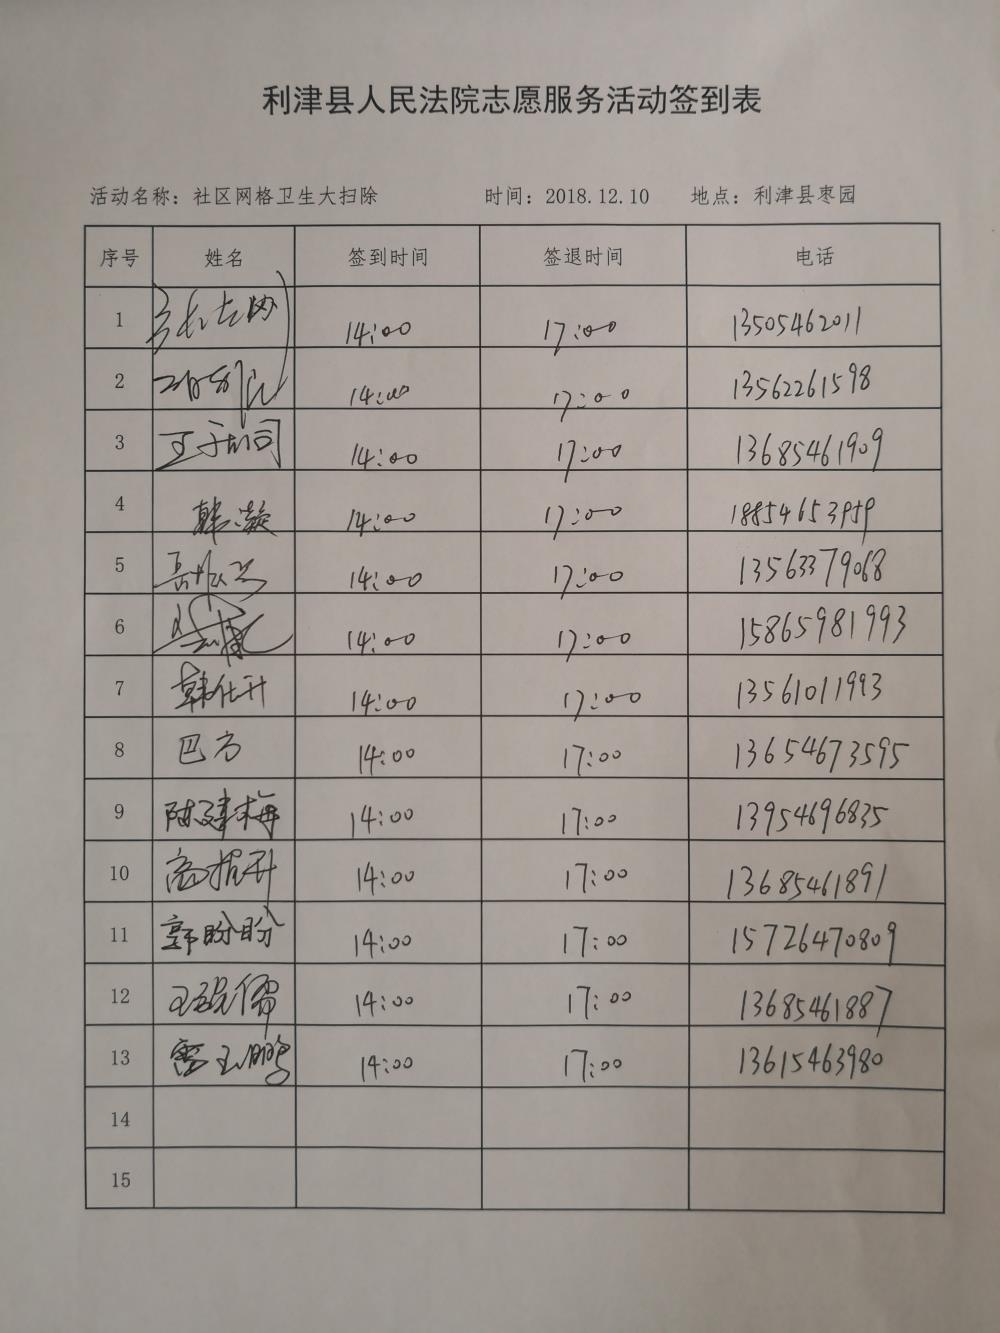 利津县人民法院志愿服务活动签到表
活动名称：社区网格卫生大扫除 时间：2018.12.10 地点：利津县枣园
序号 姓名 签到时间 签退时间 电话
1 14:00 17:00 13505462011
2 14:00 17:00 13562261598
3 14:00 17:00 13685461909
4 韩凝 14:00 17:00 18854653959
5 14:00 17:00 13563379068
6 14:00 17:00 15865981993
7 韩仕升 14:00 17:00 13561011993
8 巴方 14:00 17:00 13654673595
9 陈建梅 14:00 17:00 13954696835
10 14:00 17:00 13685461891
11 郭盼盼 14:00 17:00 15726470809
12 14:00 17:00 13685461887
13 雷玉鹏 14:00 17:00 13615463980
14
15